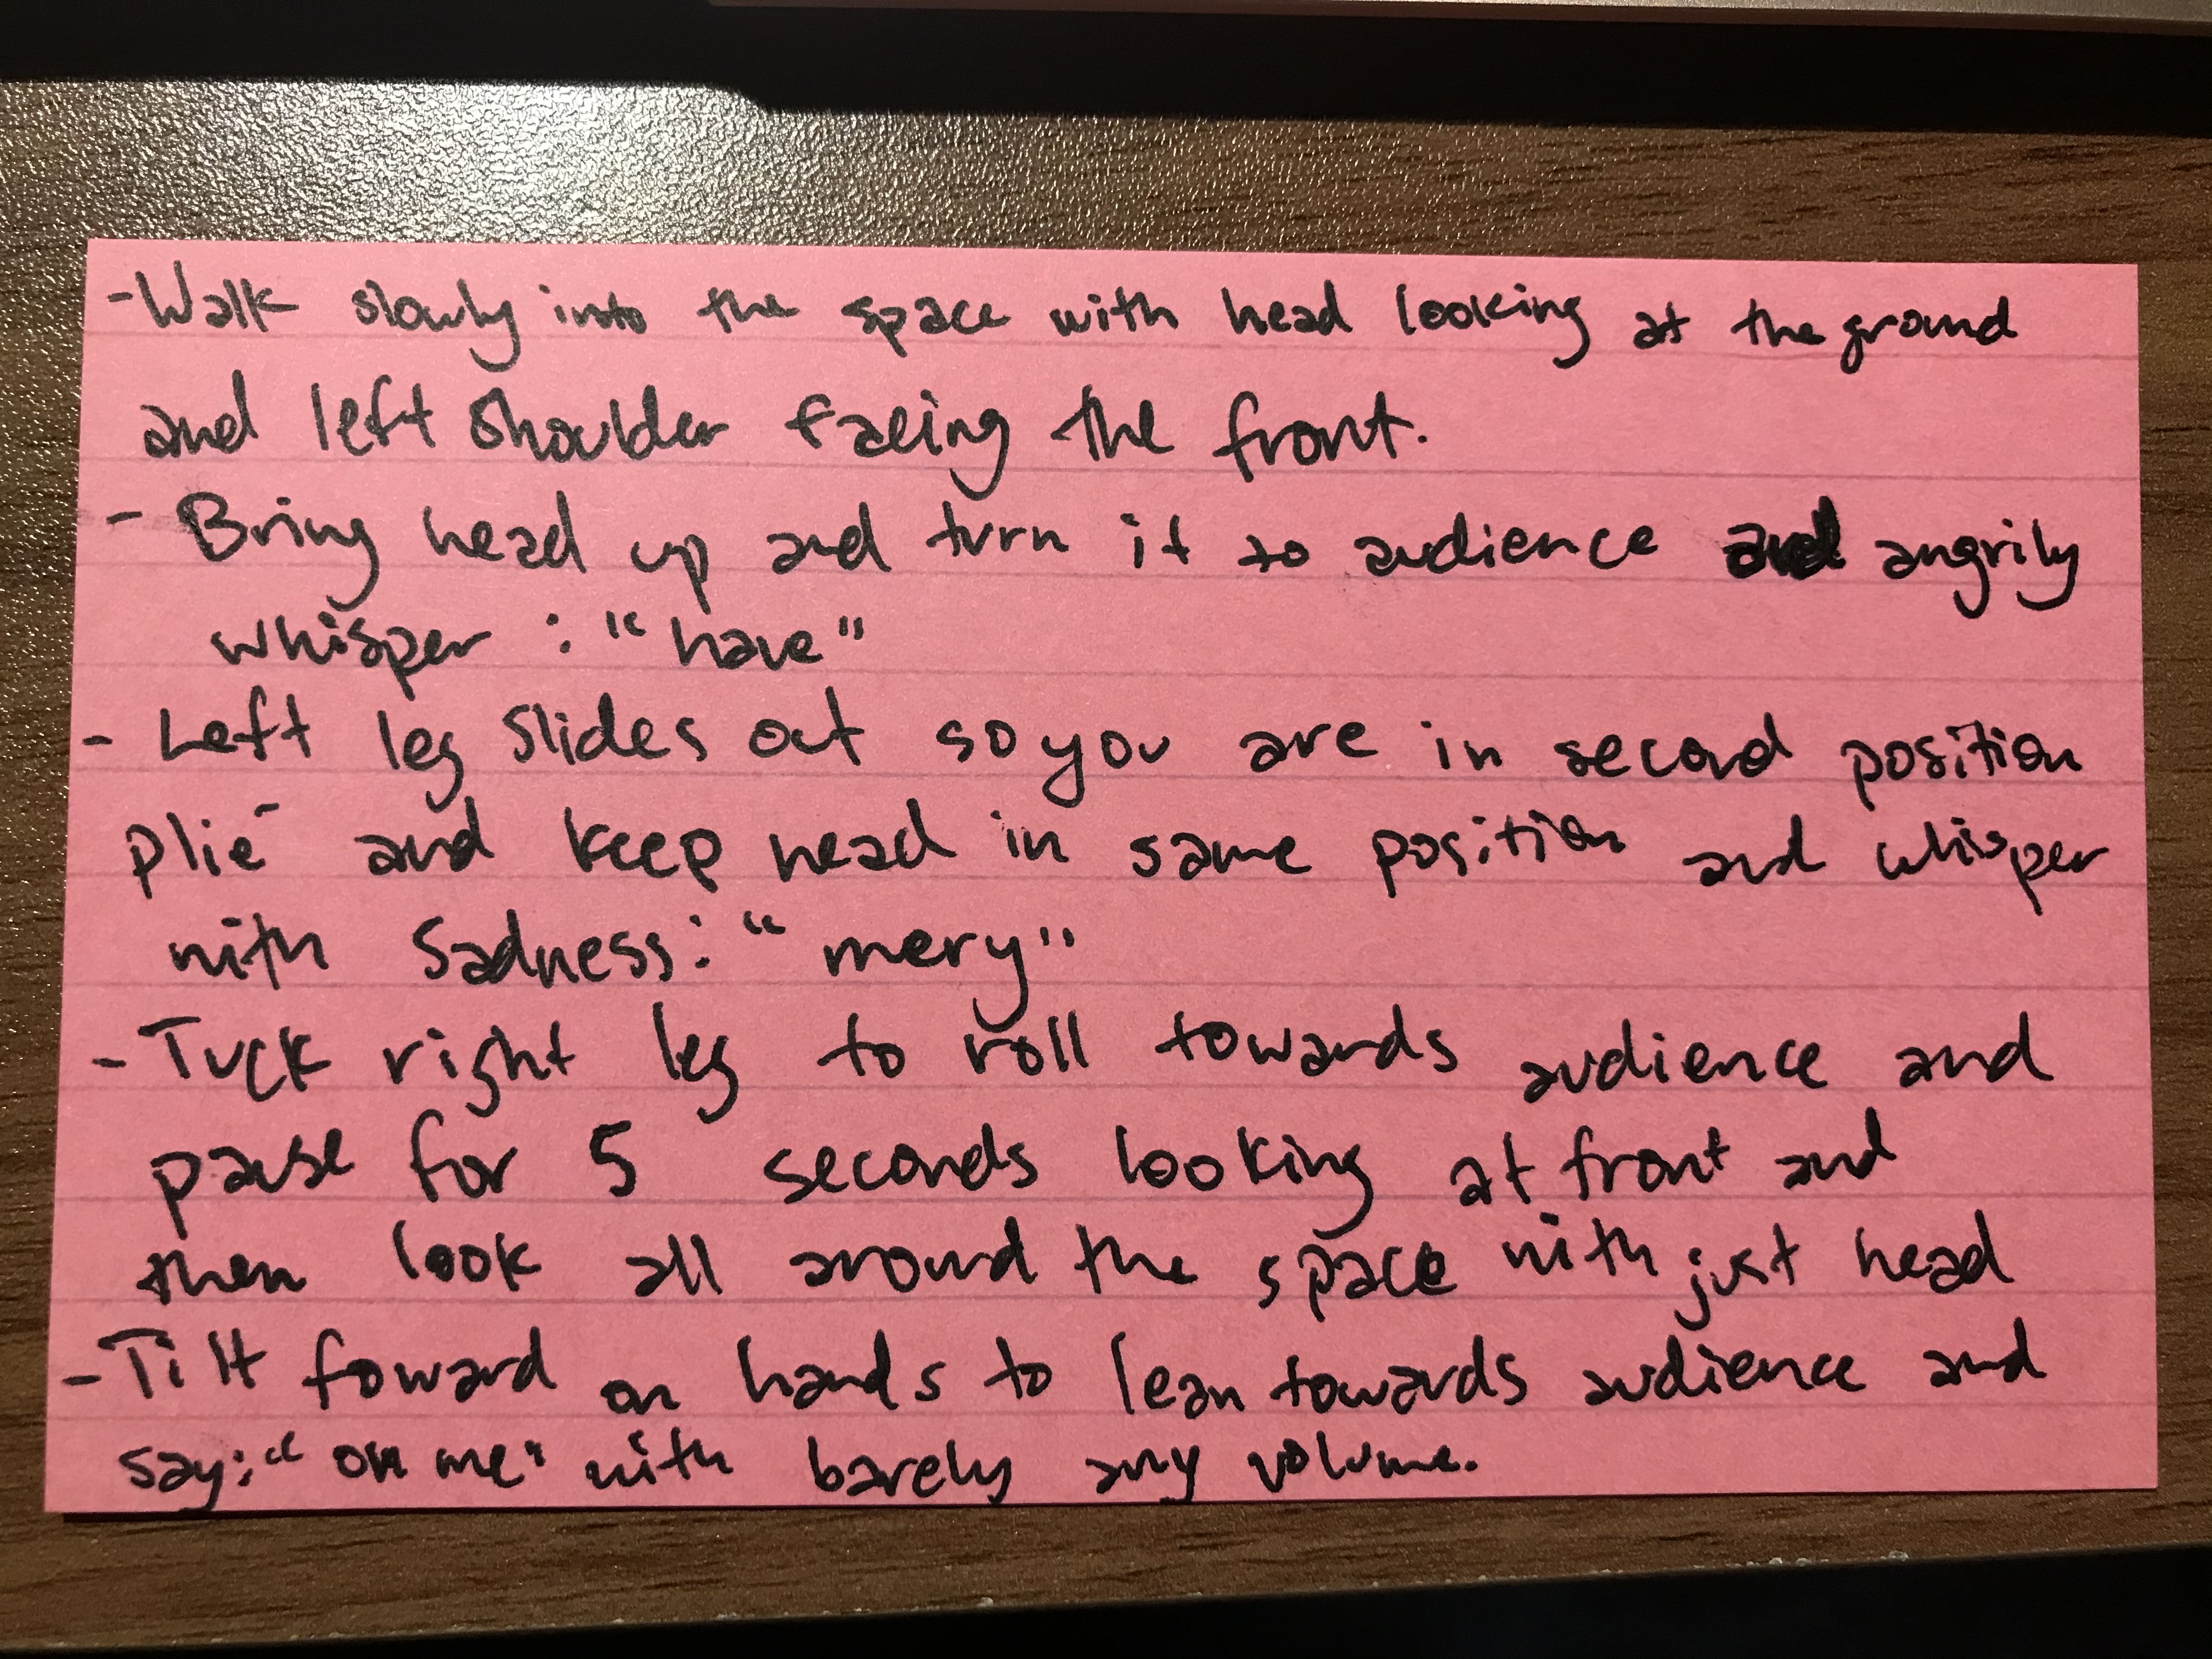 -Walk slowly into the space with head looking at the ground
and left shoulder facing the front.
- Bring head up and turn it to audience and angrily
whisper : "have"
- Left leg slides out so you are in second position
plié and keep head in same position and whisper
with sadness: "mery"
- Tuck right leg to roll towards audience and
pause for 5 seconds looking at front and
then look all around the space with just head
- Tilt foward on hands to lean towards audience and
say: "on me" with barely any volume.